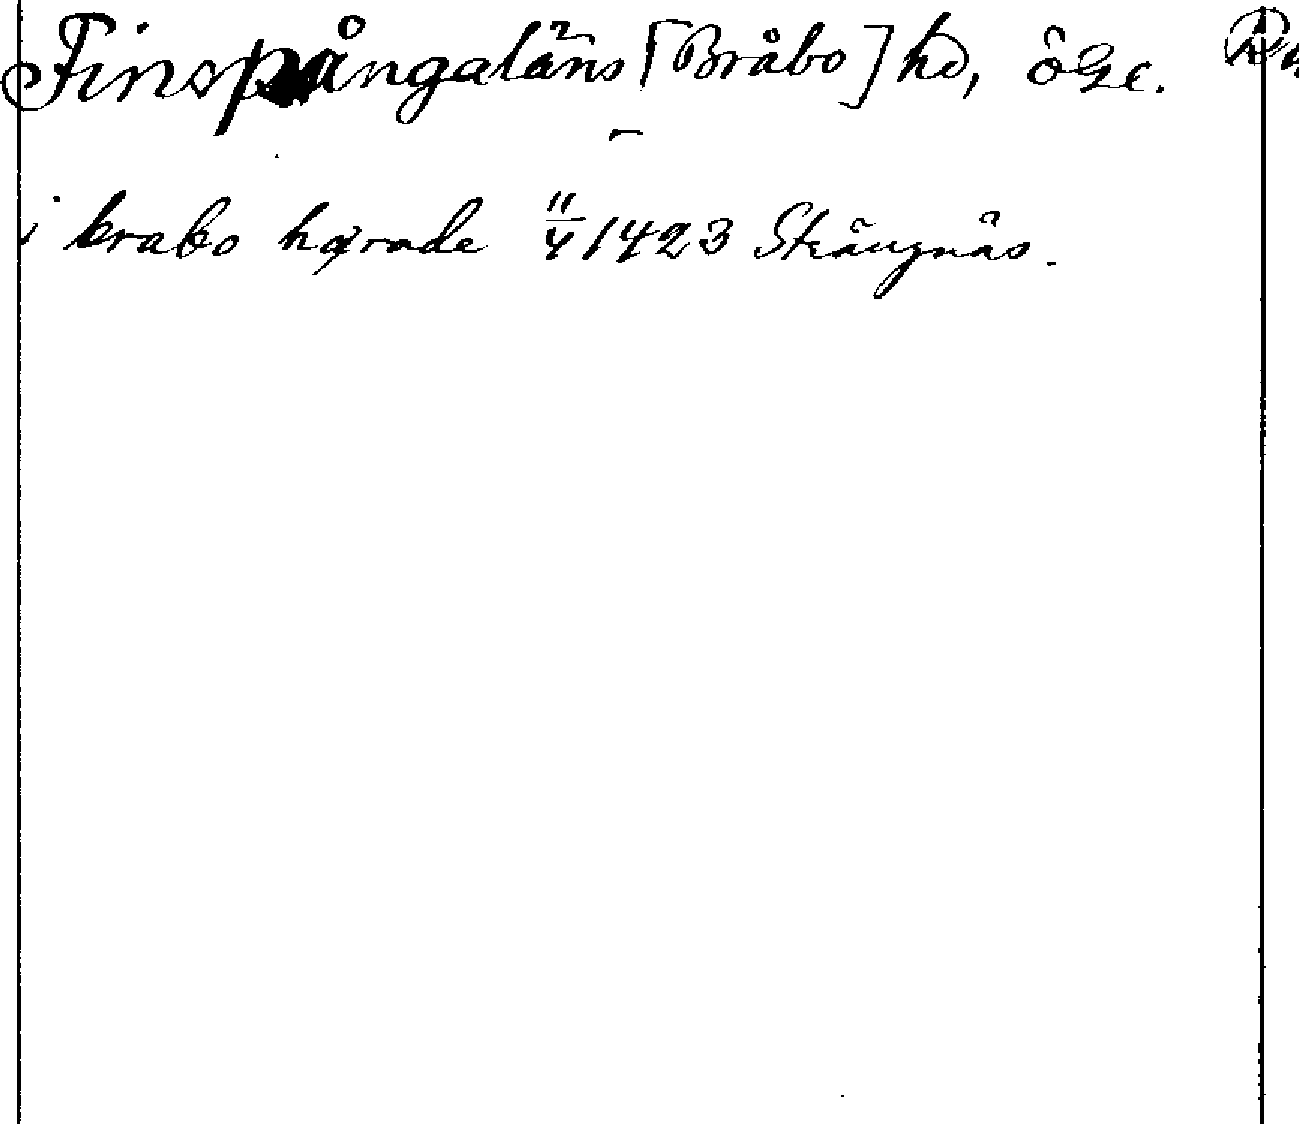 Finspångaläns [Bråbo] hd, ÖGe.
i brabo hørade 11/4 1423 Strängnäs.